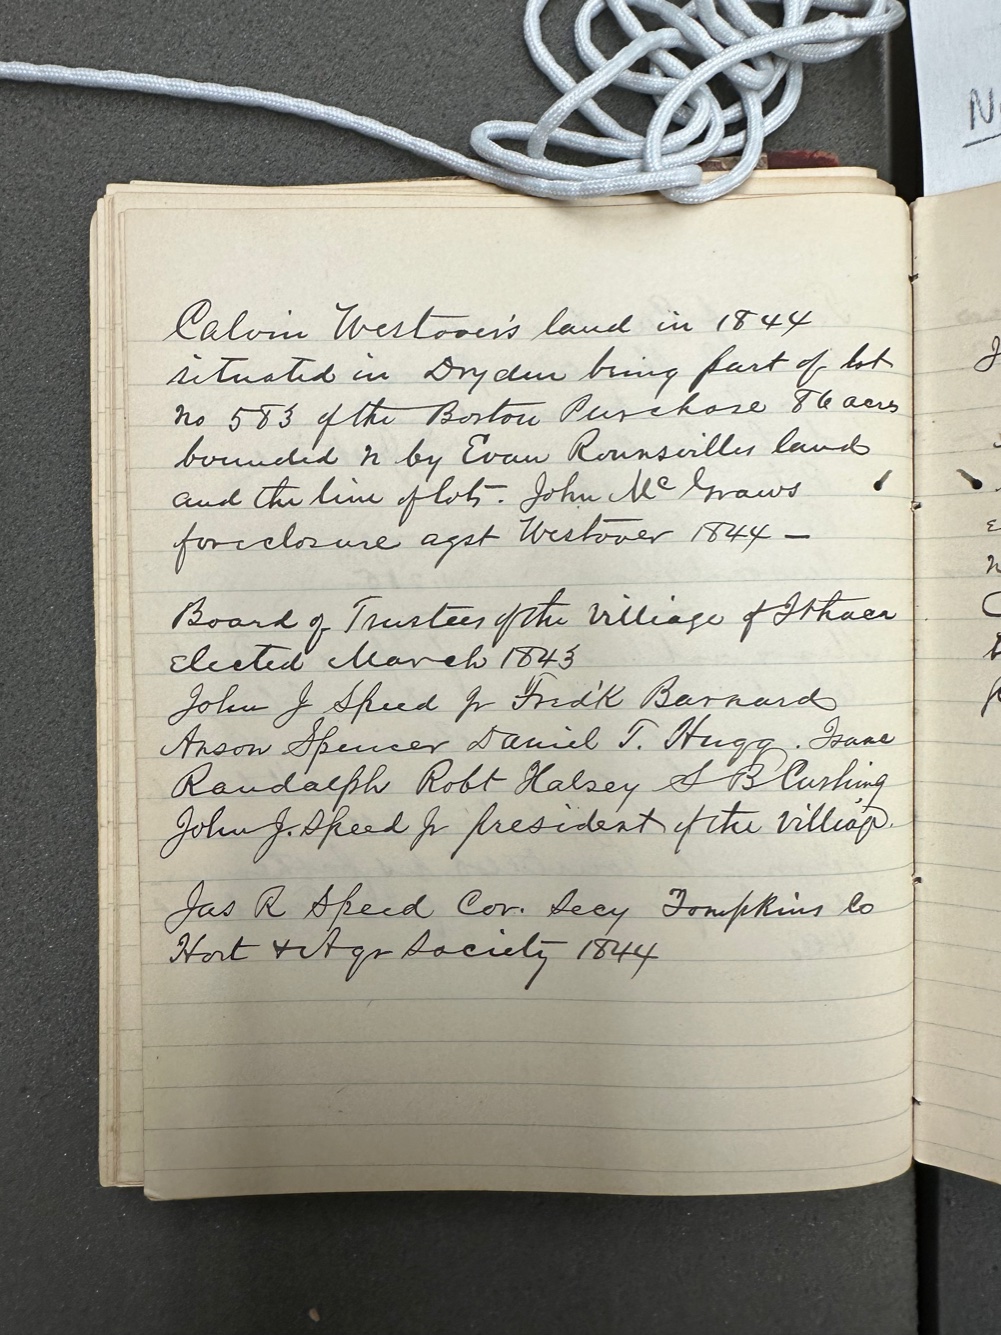 Calvin Westover's land in 1844
situated in Dryden being part of lot
no 583 of the Boston Purchase 86 acres
bounded n by Evan Rounsvilles land
and the line of lots. John McGraws
foreclosure agst Westover 1844 —
Board of Trustees of the Villiage of Ithaca
Elected March 1843
John J Speed Jr Fred'k Barnard
Anson Spencer Daniel T. Hugg. Isaac
Randalph Robt Halsey S B Cushing
John J. Speed Jr president of the Villiag.
Jas R Speed Cor. Secy Tompkins Co
Hort & Agr Society 1844